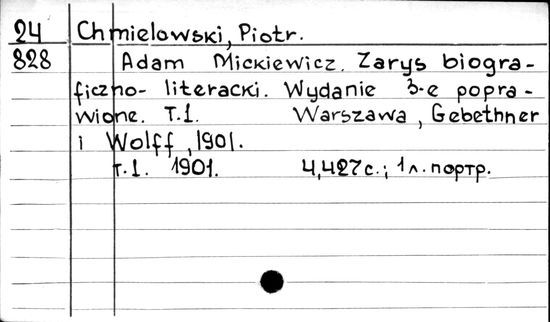 24 Chmielowski, Piotr.
828 Adam Mickiewicz. Zarys biogra-
ficzno-literacki. Wydanie 3-e popra-
wione. T.1. Warszawa, Gebethner
i Wolff, 1901.
т.1. 1901. 4,427с.; 1л. портр.